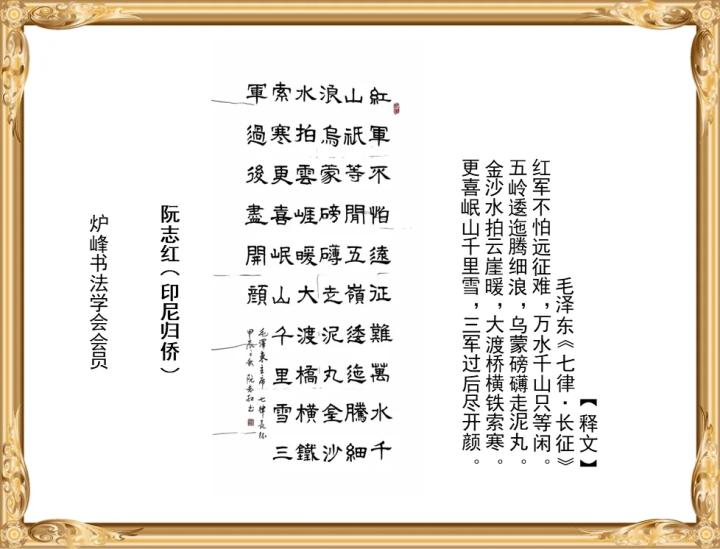 【释文】
毛泽东《七律·长征》
红军不怕远征难，万水千山只等闲。
五岭逶迤腾细浪，乌蒙磅礴走泥丸。
金沙水拍云崖暖，大渡桥横铁索寒。
更喜岷山千里雪，三军过后尽开颜。
紅軍不怕遠征難萬水千
山祇等閒五嶺逶迤騰細
浪烏蒙磅礴走泥丸金沙
水拍雲崕暖大渡橋橫鐵
索寒更喜岷山千里雪三
軍過後盡開顏
毛澤東主席七律長征
甲辰
阮志红（印尼归侨）
炉峰书法学会会员